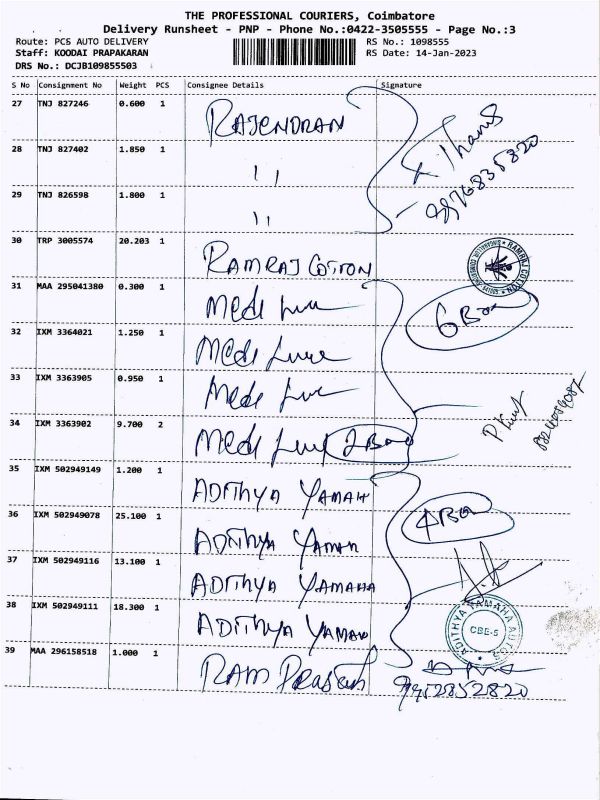 THE PROFESSIONAL COURIERS, Coimbatore
Delivery Runsheet - PNP - Phone No.:0422-3505555 - Page No.:3
Route: PCS AUTO DELIVERY RS No.: 1098555
Staff: KOODAI PRAPAKARAN RS Date: 14-Jan-2023
DRS No.: DCJB109855503
S No Consignment No Weight PCS Consignee Details Signature
27 TNJ 827246 0.600 1 RAJENDRAN
28 TNJ 827402 1.850 1 ''
29 TNJ 826598 1.800 1 ''
30 TRP 3005574 20.203 1 RAMRAJ COTTON
RAMRAJ COTTON
31 MAA 295041380 0.300 1 Medi
6 Box
32 IXM 3364021 1.250 1 Medi
33 IXM 3363905 0.950 1 Medi
34 IXM 3363902 9.700 2 Medi 2 Box
35 IXM 502949149 1.200 1 ADITHYA YAMAH
4 Box
36 IXM 502949078 25.100 1 ADITHYA YAMAH
37 IXM 502949116 13.100 1 ADITHYA YAMAHA
38 IXM 502949111 18.300 1 ADITHYA YAMAH
ADITHYA YAMAHA AUTOS
CBE-5
39 MAA 296158518 1.000 1 RAM PRASATH